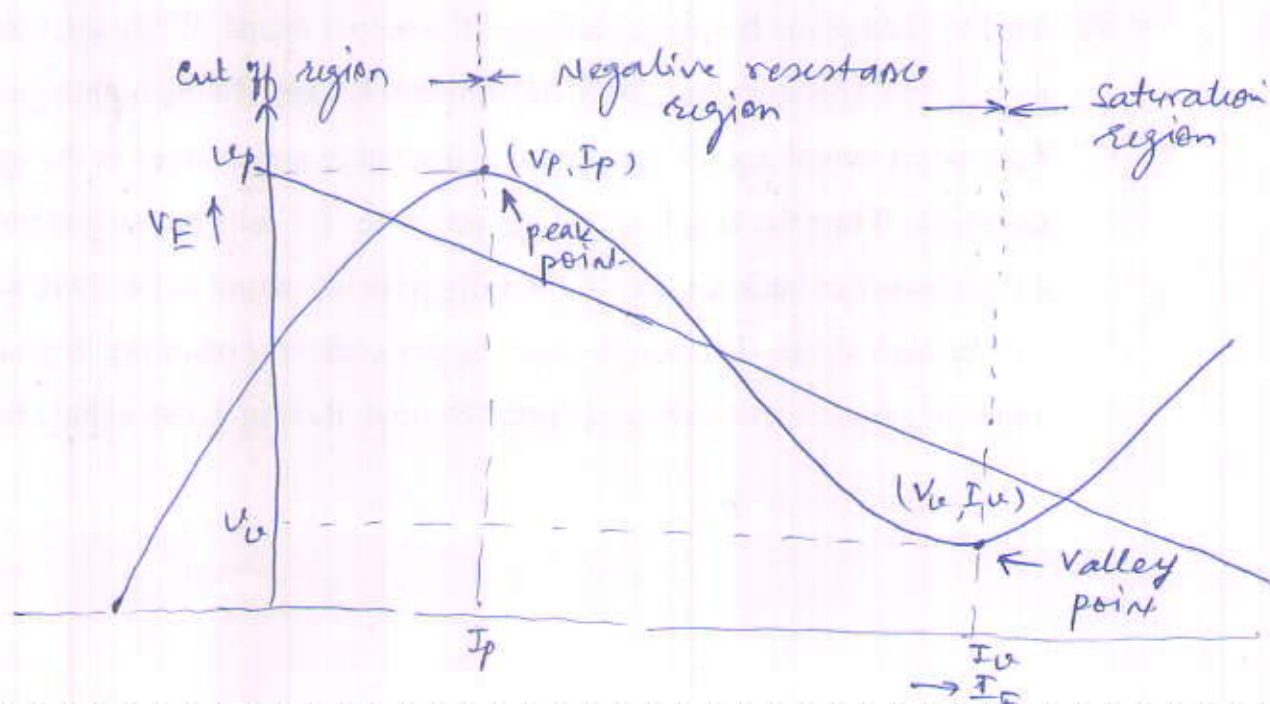 Cut off region
Negative resistance
region
Saturation
region
Vp
(Vp, Ip)
VE ↑
peak
point
(Vv, Iv)
Vv
← Valley
point
Ip
Iv
→ IE